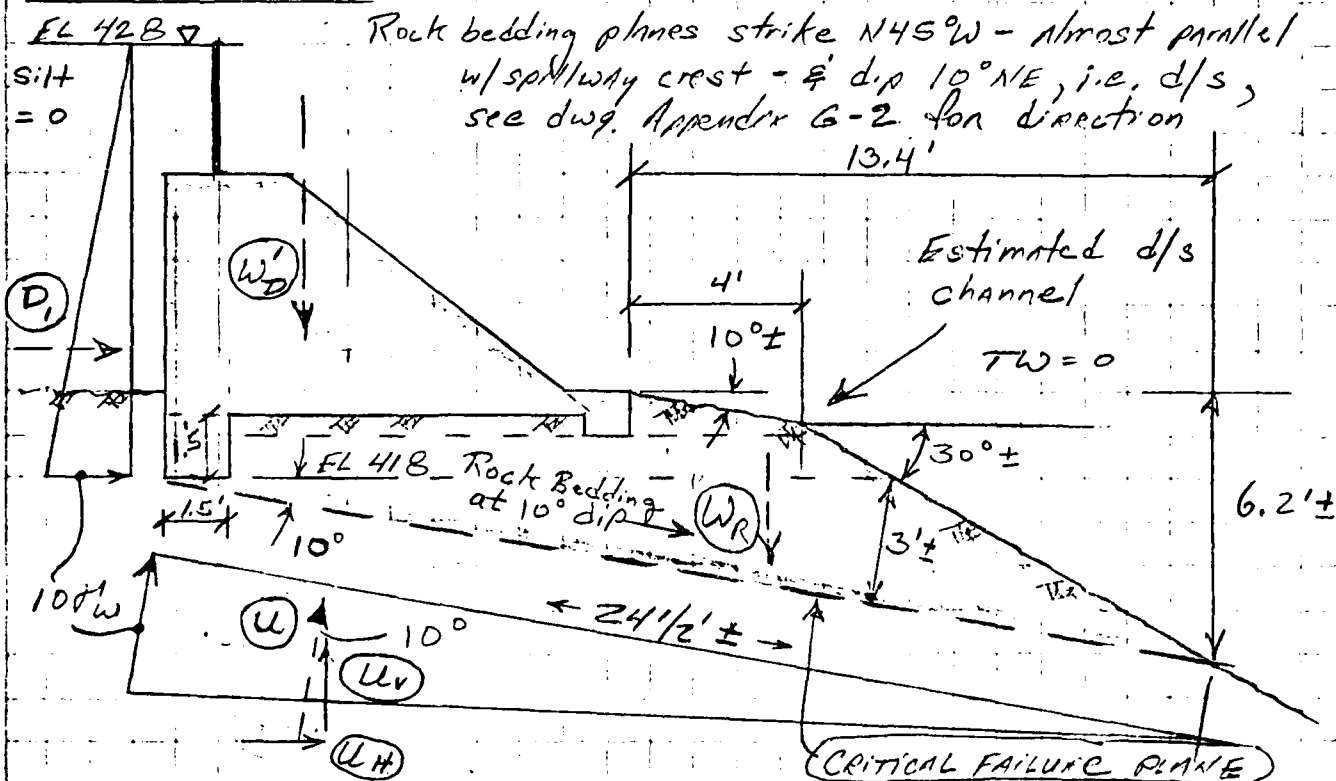 EL 428 ▽
Rock bedding planes strike N45°W - Almost parallel
w/spillway crest - & dip 10° NE, i.e. d/s,
see dwg. Appendix G-2 for direction
silt
= 0
13.4'
W'D
Estimated d/s
channel
D1
4'
10°±
TW = 0
.5'
EL 418
Rock Bedding
at 10° dip
30°±
WR
6.2'±
1.5'
10°
3'±
10γw
U
10°
24 1/2' ±
UV
UH
CRITICAL FAILURE PLANE